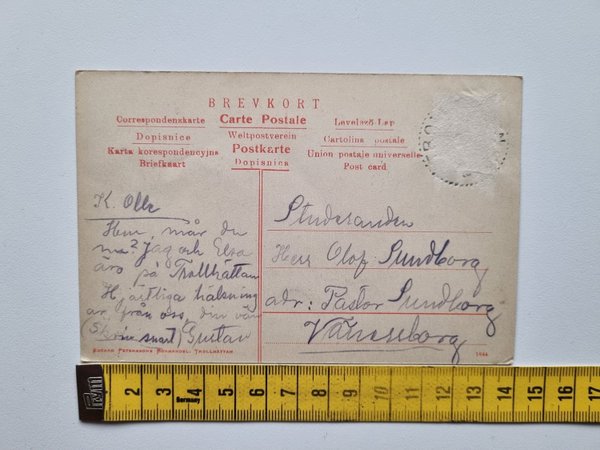 BREVKORT
Correspondenskarte Carte Postale Levelező-Lap
Dopisnice Weltpostverein Cartolina postale
Karta korespondencyjna Postkarte Union postale universelle
Briefkaart Dopisnica Post card
K. Olle
Hur mår du
nu? Jag och Elsa
äro på Trollhättan
Hjärtliga hälsning
ar från oss, din vän
(Skriv snart) Gustav
Studeranden
Herr Olof Sundborg
adr: Pastor Sundborg
Vänersborg
Petterssons Bokhandel, Trollhättan
1 2 3 4 5 6 7 8 9 10 11 12 13 14 15 16 17
Germany